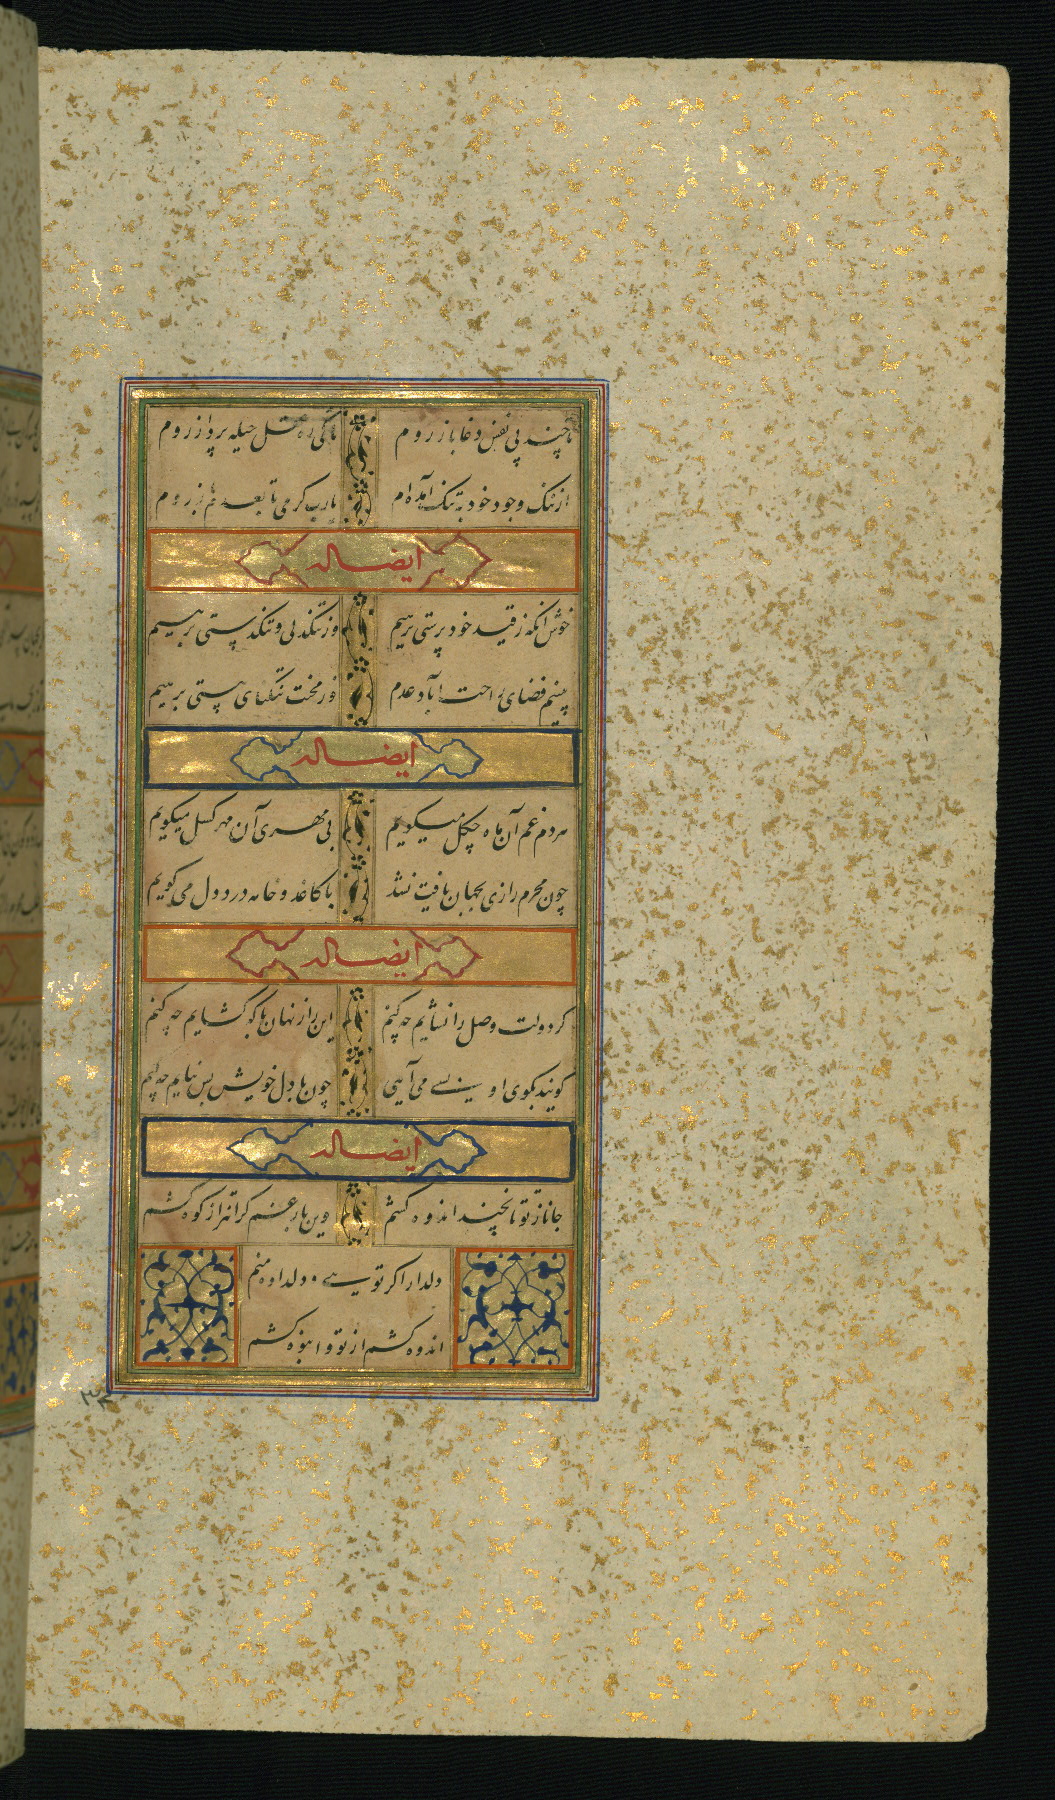 تا چند پی نفس دغا باز روم
تا کی ره حیله پرداز روم
از ننگ وجود خود به تنگ آمده‌ام
یارب کرمی تا بعدم باز روم
ایضا له
خوش آنکه ز قید خود پرستی برهیم
وز تنگدلی و تنگدستی برهیم
بینیم فضای راحت آباد عدم
وز محنت تنگنای هستی برهیم
ایضا له
هر دم غم آن ماه چگل میگویم
بی مهری آن مهر گسل میگویم
چون محرم رازی بجهان یافت نشد
با کاغذ و خامه درد دل می گویم
ایضا له
گر دولت وصل را نشائیم چه کنیم
این راز نهان با که گشایم چه کنم
گویند بکوی او بسی می آیی
چون با دل خویش بس نیایم چه کنم
ایضا له
جانا ز تو تا بچند اندوه کشم
وین بار غم گرانتر از کوه کشم
دلدار اگر تویی و دلداده منم
اندوه کشم از تو و انبوه کشم